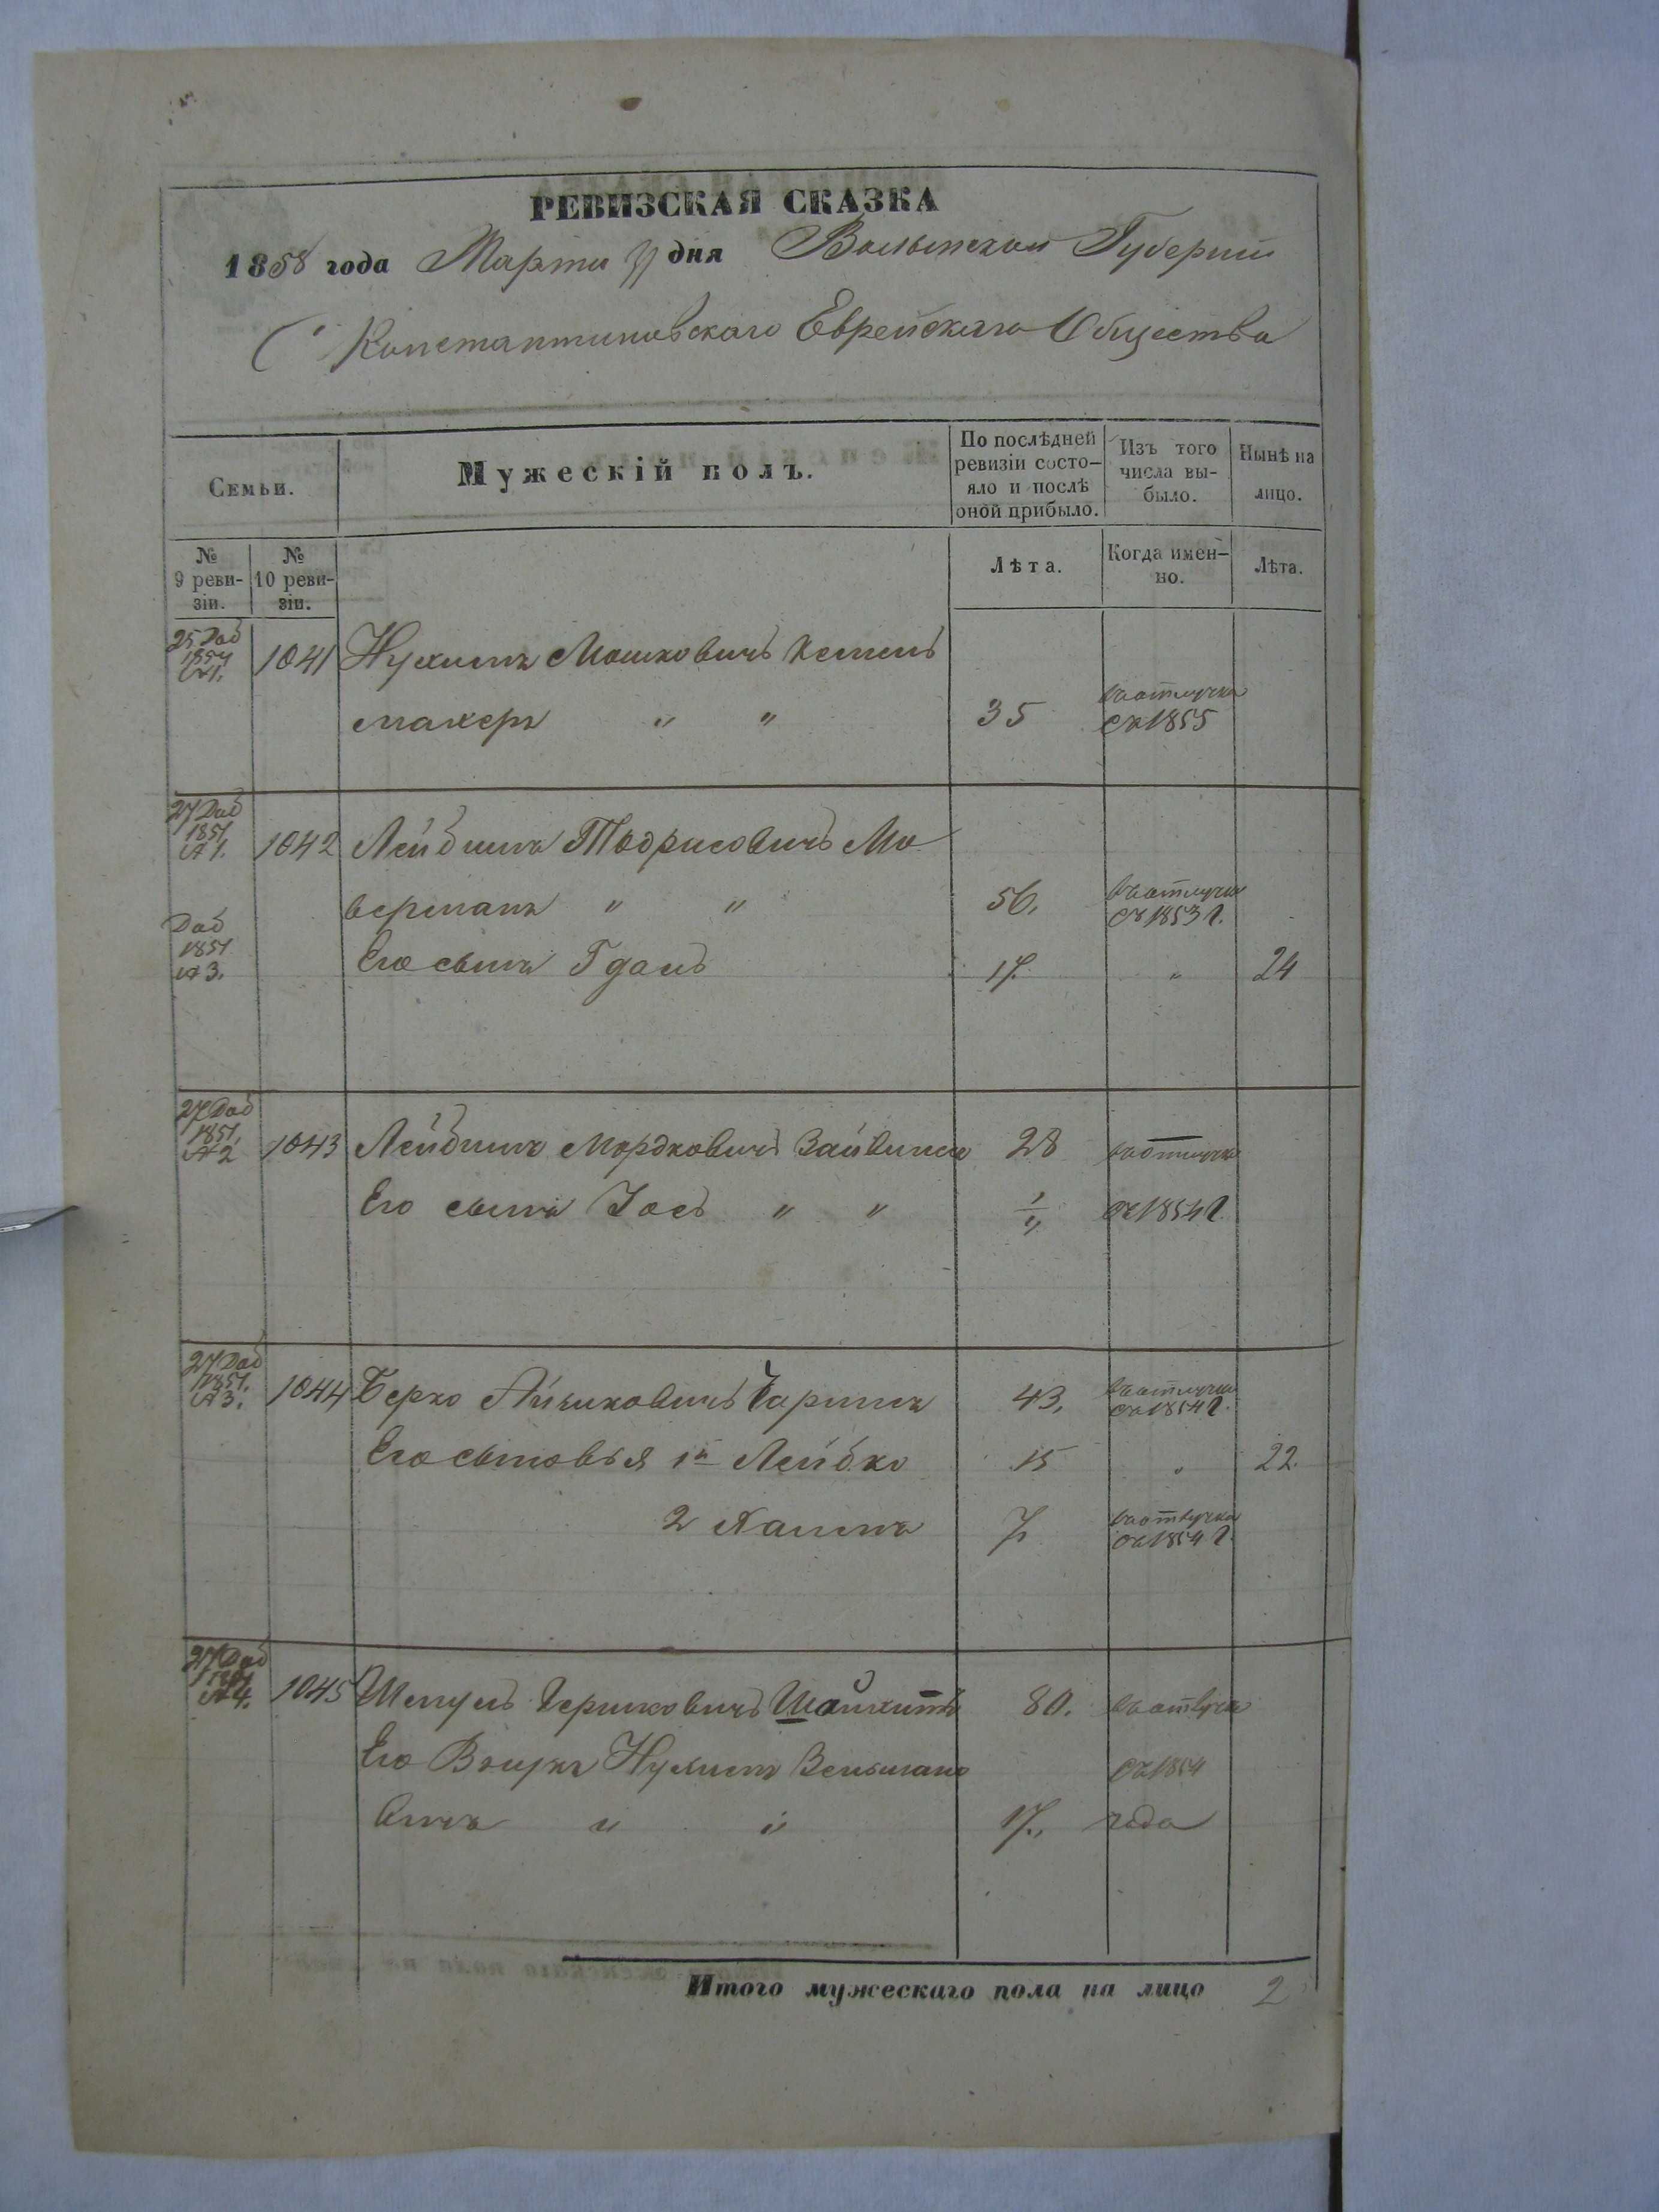 РЕВИЗСКАЯ СКАЗКА
1858 года Марта 31 дня Волынской Губерніи
Константиновскаго Еврейскаго Общества
Семьи.
Мужескій полъ.
По послѣдней ревизіи состо-
яло и послѣ
оной прибыло.
Изъ того
числа вы-
было.
Нынѣ на
лицо.
№
9 реви-
зіи.
№
10 реви-
зіи.
Лѣта.
Когда имен-
но.
Лѣта.
25 Доб
1854
№1. 1041 Нухимъ Мошковичъ Кесель
махеръ " " 35 въ отлучке
съ 1855
27 Доб
1851
№1. 1042 Лейбишъ Тодрисовичъ Мо
верманъ " " 56, въ отлучке
съ 1853 г.
Доб
1851
№3. Его сынъ Гдаль 17. " 24
27 Доб
1851.
№2 1043 Лейбишъ Мордковичъ 28 въ отлучке
Его сынъ Іось " " съ 1854 г.
27 Доб
1851.
№3. 1044 Берко Айзиковичъ 43, въ отлучке
съ 1854 г.
Его сыновья 1й Лейбко 15 " 22.
2 Хаимъ 7. въ отлучке
съ 1854 г.
27 Доб
1851
№4. 1045 Шмуль Гершковичъ 80. въ отлучке
Его Внукъ Нухимъ съ 1854
вичъ " " 17., года
Итого мужескаго пола на лицо 2